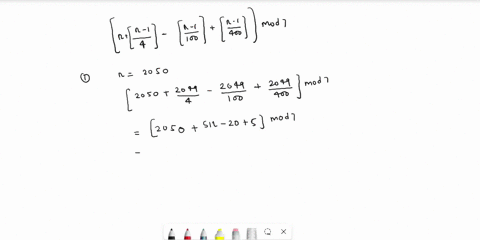 [n+[n-1/4] - [n-1/100] + [n-1/400]] mod 7
① n = 2050
[2050 + 2049/4 - 2049/100 + 2049/400] mod 7
= [2050 + 512 - 20 + 5] mod 7
=